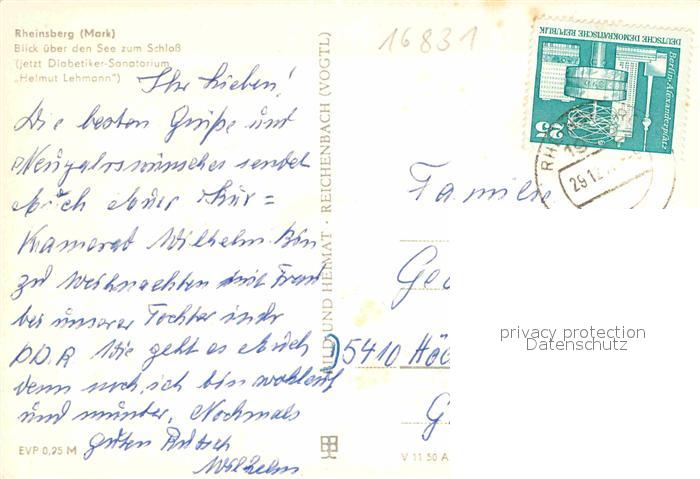 Rheinsberg (Mark)
Blick über den See zum Schloß
(jetzt Diabetiker-Sanatorium
„Helmut Lehmann")
16831
Ihr Lieben!
Die besten Grüße und
Neujahrswünsche sendet
Euch Euer Kur=
Kamerad Wilhelm. Bin
zu Weihnachten mit Frau
bei unserer Tochter in der
DDR Wie geht es Euch
denn noch, ich bin wohlauf
und munter. Nochmals
guten Rutsch
Wilhelm
EVP 0,25 M
BILD UND HEIMAT · REICHENBACH (VOGTL)
V 11 50 A
DEUTSCHE DEMOKRATISCHE REPUBLIK
Berlin-Alexanderplatz
25
RH
29.12.
Familie
5410 Hö
G
privacy protection
Datenschutz